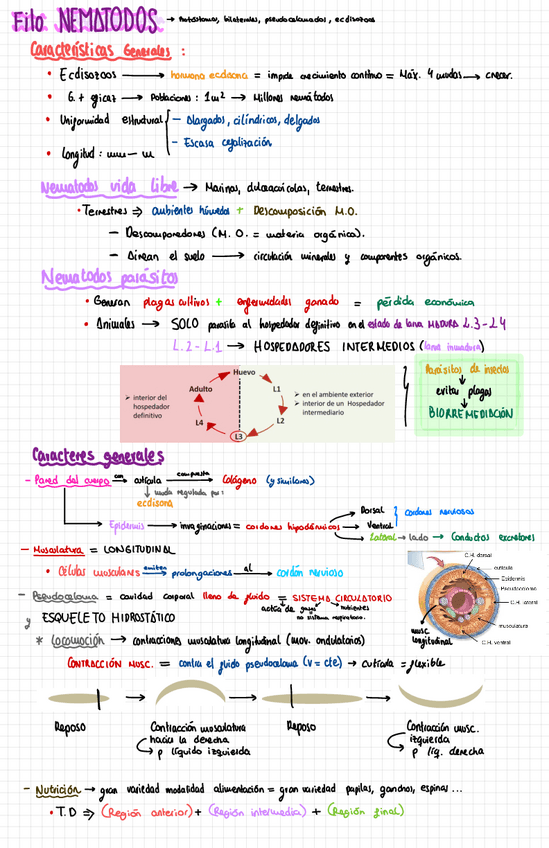 Filo NEMATODOS → Protóstomos, bilaterales, pseudocelomados, ecdisozoos
Características Generales :
• Ecdisozoos → hormona ecdisona = impide crecimiento continuo = Máx. 4 mudas → crecer.
→ Poblaciones : 1m² → Millones nemátodos
• Uniformidad estructural — Alargados, cilíndricos, delgados
— Escasa cefalización
• Longitud : mm — m
Nematodos vida libre → Marinos, dulceacuícolas, terrestres.
• Terrestres ⇒ ambientes húmedos + Descomposición M.O.
— Descomponedores (M.O. = materia orgánica).
— Airean el suelo → circulación minerales y componentes orgánicos.
Nematodos parásitos
• Generan plagas cultivos + enfermedades ganado = pérdida económica
• Animales → SOLO parasita al hospedador definitivo en el estado de larva MADURA L.3-L4
L.2-L.1 → HOSPEDADORES INTERMEDIOS (larva inmadura)
Huevo
Adulto
L1
L2
L3
L4
➢ interior del hospedador definitivo
➢ en el ambiente exterior
➢ interior de un Hospedador intermediario
Parásitos de insectos
evitar plagas
BIORREMEDIACIÓN
Caracteres generales
— Pared del cuerpo con → cutícula compuesta → Colágeno (y similares)
↓ muda regulada por:
ecdisona
Epidermis → invaginaciones = cordones hipodérmicos
Dorsal
Ventral
cordones nerviosos
Lateral → lado → Conductos excretores
— Musculatura = LONGITUDINAL
• Células musculares emiten → prolongaciones al → cordón nervioso
— Pseudoceloma = cavidad corporal llena de fluido = SISTEMA CIRCULATORIO
nutrientes
no sistema respiratorio.
y ESQUELETO HIDROSTÁTICO
* Locomoción → contracciones musculatura longitudinal (mov. ondulatorios)
CONTRACCIÓN MUSC. = contra el fluido pseudoceloma (V = cte) → cutícula = flexible
C.H. dorsal
cutícula
Epidermis
Pseudoceloma
C.H. lateral
musculatura
C.H. ventral
musc. longitudinal
Reposo
Contracción musculatura
hacia la derecha
P líquido izquierda
Reposo
Contracción musc.
izquierda
P líq. derecha
— Nutrición → gran variedad modalidad alimentación = gran variedad papilas, ganchos, espinas ...
• T.D ⇒ (Región anterior) + (Región intermedia) + (Región final)